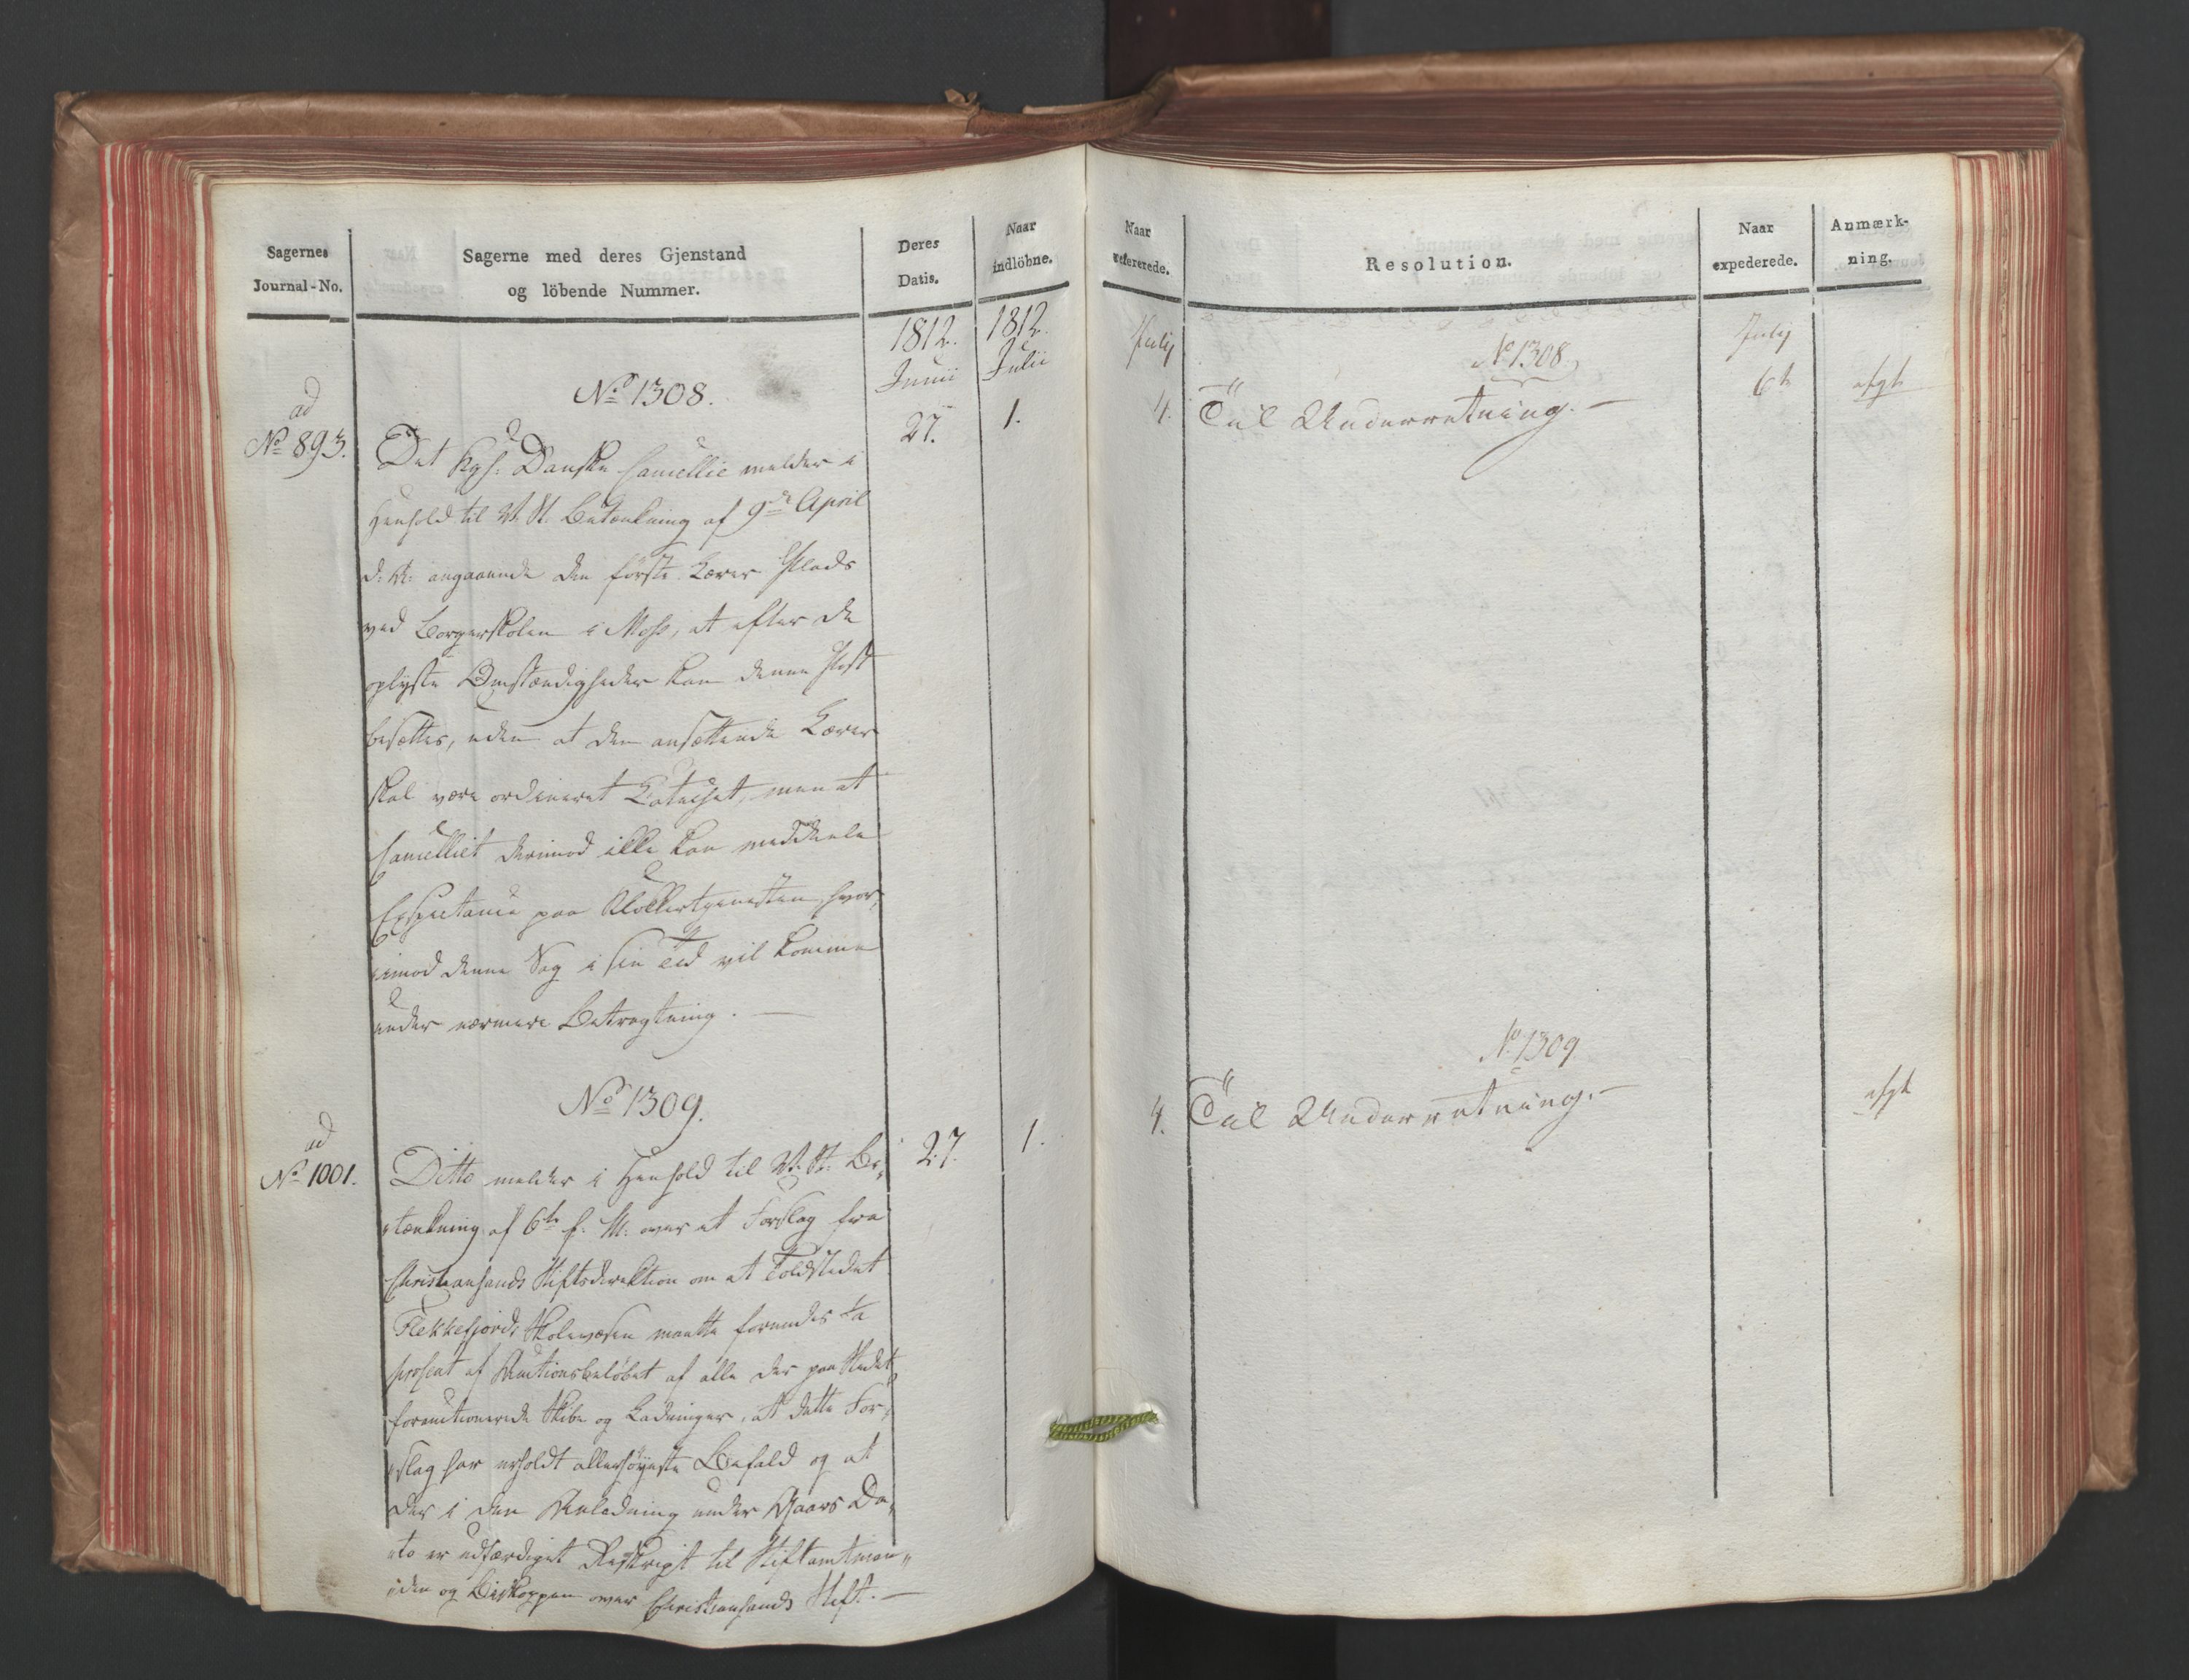 Sagernes
Journal-No.
Sagerne med deres Gjenstand
og löbende Nummer.
Deres
Datis.
Naar
indlöbne.
1812.
Junii
1812.
Julii
No 1308.
ad
No 893.
27.
1.
Det Kgl: Danske Cancellie melder i
Henhold til V. St. Betænkning af 9de April
d. A: angaaende den første Lærer Plads
ved Borgerskolen i Moss, at efter de
oplyste Omstændigheder kan denne Post
besættes, uden at den ansættende Lærer
skal være ordineret Catechet, men at
Cancelliet derimod ikke kan meddeele
Exspectance paa Klokkertjenesten, hvor-
imod denne Sag i sin Tid vil komme
under nærmere Betragtning. —
No 1309.
ad
No 1001.
27.
1.
Ditto melder i Henhold til V. St. Be-
tænkning af 6te f. M. over et Forslag fra
Christiansands Stiftsdirektion om at Toldstedet
Flekkefjords Skolevæsen maatte forundes ½
procent af Auctionsbeløbet af alle der paa Stedet
forauctionerede Skibe og Ladninger, at dette For-
slag har erholdt allerhøyeste Bifald og at
der i den Anledning under Gaars Da-
to er udfærdiget Rescript til Stiftamtman-
den og Biskoppen over Christiansands Stift. —
Naar
refererede.
Resolution.
Naar
expederede.
Anmærk-
ning.
July
July
No 1308.
4.
Til Underretning. —
6te
afgt
No 1309
4.
Til Underretning. —
afgt